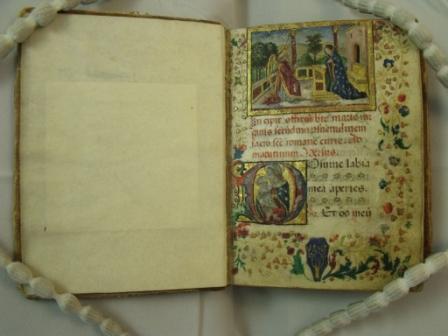 In cipit offitiū bte marie uir
ginis secundum
sacro sce romane curie. Ad
matutinum Versus.
Domine labia
mea aperies.
Et os meū